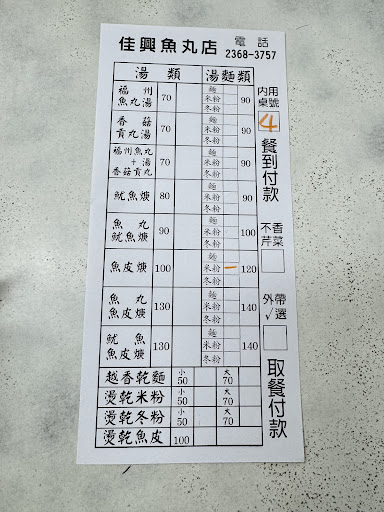 佳興魚丸店 電話
2368-3757
湯類 湯麵類
福州
魚丸湯 70 麵 米粉 冬粉 90
香菇
貢丸湯 70 麵 米粉 冬粉 90
福州魚丸
+湯
香菇貢丸 70 麵 米粉 冬粉 90
魷魚焿 80 麵 米粉 冬粉 90
魚丸
魷魚焿 90 麵 米粉 冬粉 100
魚皮焿 100 麵 米粉 冬粉 120
魚丸
魚皮焿 130 麵 米粉 冬粉 140
魷魚
魚皮焿 130 麵 米粉 冬粉 140
越香乾麵 小50 大70
燙乾米粉 小50 大70
燙乾冬粉 小50 大70
燙乾魚皮 100
內用
桌號
4
餐到付款
不香
芹菜
外帶
√選
取餐付款